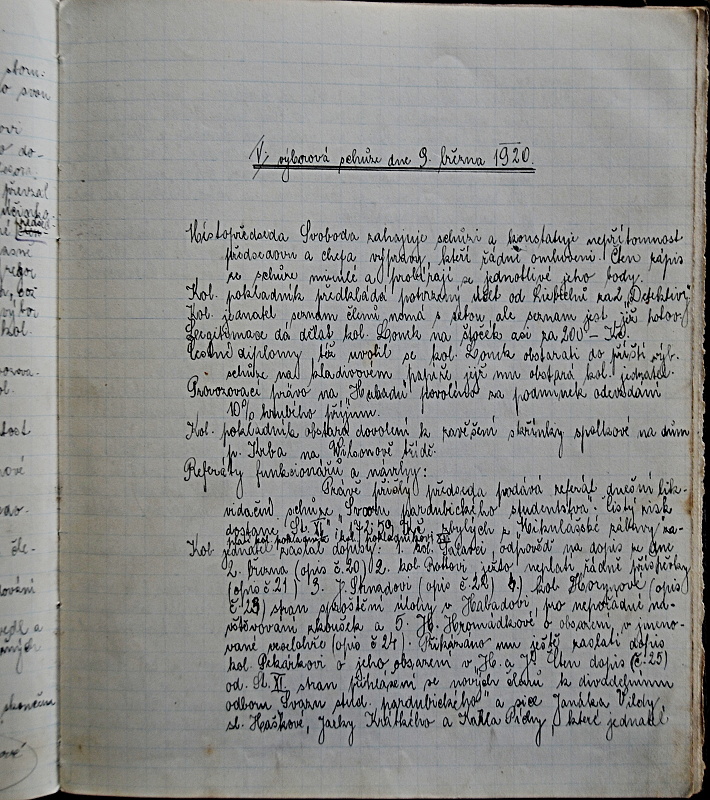 V. výborová schůze dne 9. března 1920.
Místopředseda Svoboda zahajuje schůzi a konstatuje nepřítomnost
předsedovu a chefa výpravy, kteří řádně omluveni. Čten zápis
ze schůze minulé a probírají se jednotlivé jeho body.
Kol. pokladník předkládá potvrzený účet od za 2 "Detektivy"
Kol. jednatel seznam členů nemá s sebou, ale seznam jest již hotov.
Legitimace dá dělat kol. Loník na štoček asi za 200 – Kč.
Čestné diplomy též uvolil se kol. Loník obstarati do příští výb.
schůze na kladívkovém papíře jejž mu obstará kol. jednatel.
Provozovací právo na "Habadů" povoleno za podmínek odevzdání
10% hrubého příjmu.
Kol. pokladník obstará dovolení k zavěšení skřínky spolkové na dům
p. Srba na Wilsonově třídě.
Referáty funkcionářů a návrhy:
Právě přišlý předseda podává referát dnešní lik-
vidační schůze "Svazu pardubického studentstva": čistý zisk
dostane "St. XI" zbylých z "Mikulášské zábavy" za-
platí kol. pokladník kol. pokladníkovi XI
Kol. jednatel zaslal dopisy: 1. kol. odpověď na dopis ze dne
2. března (opis č. 20) 2. kol. Rottovi, ježto neplatí řádně příspěvky
(opis č 21) 3. J. Skřivadovi (opis č. 22) 4. kol. Horynové (opis
č. 23) stran spoštění úlohy v Habadovi, pro nepořádné na-
vštěvování zkoušek a 5. Hromádkové o obsazení v jmeno-
vané veselohře (opis č 24). Přikázáno mu ještě zaslati dopis
kol. Pekárkovi o jeho obsazení v "H. a J." Čten dopis (č. 25)
od. St. XI. stran přihlášení se nových členů k divadelnímu
odboru "Svazu stud. pardubického" a sice Janáka Vildy,
sl. Haškové, Jarky Krátkého a Karla Píchy, které jednatel